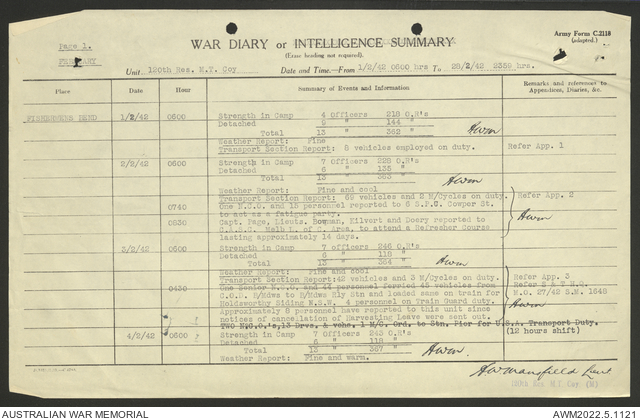 Page 1.
WAR DIARY or INTELLIGENCE SUMMARY
(Erase heading not required).
Army Form C.2118
(adapted.)
Unit 120th Res. M.T. Coy Date and Time.—From 1/2/42 0600 hrs To 28/2/42 2359 hrs.
Place Date Hour Summary of Events and Information Remarks and references to Appendices, Diaries, &c.
1/2/42 0600 Strength in Camp 4 Officers 218 O.R's
Detached 9 " 144 "
Total 13 " 362 "
Weather Report: Fine
Transport Section Report: 8 vehicles employed on duty. Refer App. 1
2/2/42 0600 Strength in Camp 7 Officers 228 O.R's
Detached 6 " 135 "
Total 13 " 363 "
Weather Report: Fine and cool
Transport Section Report: 69 vehicles and 2 M/Cycles on duty. Refer App. 2
0740 One N.C.O. and 15 personnel reported to 6 S.P.C. Cowper St.
to act as a fatigue party.
0830 Capt. Page, Lieuts. Bowman, Kilvert and Doery reported to
C.A.S.C. Melb L. of C. Area, to attend a Refresher Course
lasting approximately 14 days.
3/2/42 0600 Strength in Camp 7 officers 246 O.R's
Detached 6 " 118 "
Total 13 " 364 "
Weather Report: Fine and cool
Transport Section Report: 42 vehicles and 3 M/Cycles on duty. Refer App. 3
0430 One Senior N.C.O. and 44 personnel ferried 45 vehicles from Refer S & T H.Q.
C.O.D. B/Mdws to B/Mdws Rly Stn and loaded same on train for M.O. 27/42 S.M. 1648
Holdsworthy Siding N.S.W. 4 personnel on Train Guard duty.
Approximately 8 personnel have reported to this unit since
notices of cancellation of Harvesting Leave were sent out.
TWO N.C.O.'s, 13 Drvs. & vehs, 1 M/C. Ord. to Stn. Pier for U.S.A. Transport Duty.
(12 hours shift)
4/2/42 0600 Strength in Camp 7 Officers 243 O.R's
Detached 6 " 118 "
Total 13 " 367 "
Weather Report: Fine and warm.
120th Res M.T. Coy. (M)
AUSTRALIAN WAR MEMORIAL
AWM2022.5.1121